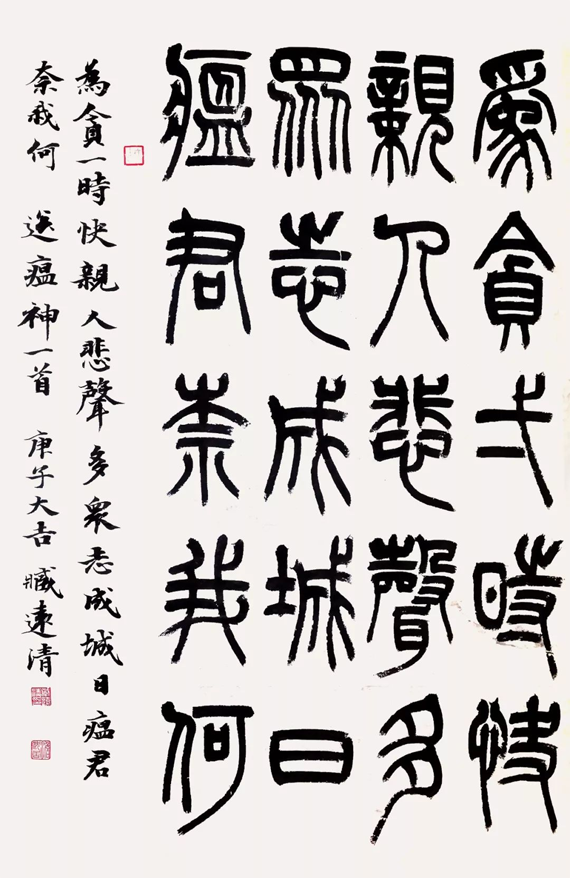 為貪弌時快
親人悲聲多
眾志成城日
瘟君奈我何
為貪一時快親人悲聲多衆志成城日瘟君
奈我何 送瘟神一首 庚子大吉 臧遠清